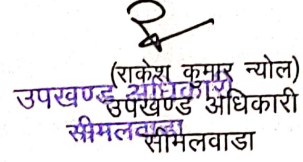 (राकेश कुमार न्योल)
उपखण्ड अधिकारी
उपखण्ड अधिकारी
सीमलवाडा
सीमलवाडा